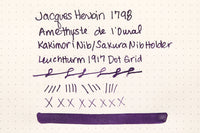 Jacques Herbin 1798
Améthyste de l'Oural
Kakimori Nib/Sakura Nib Holder
Leuchtturm 1917 Dot Grid
X X X X X X X